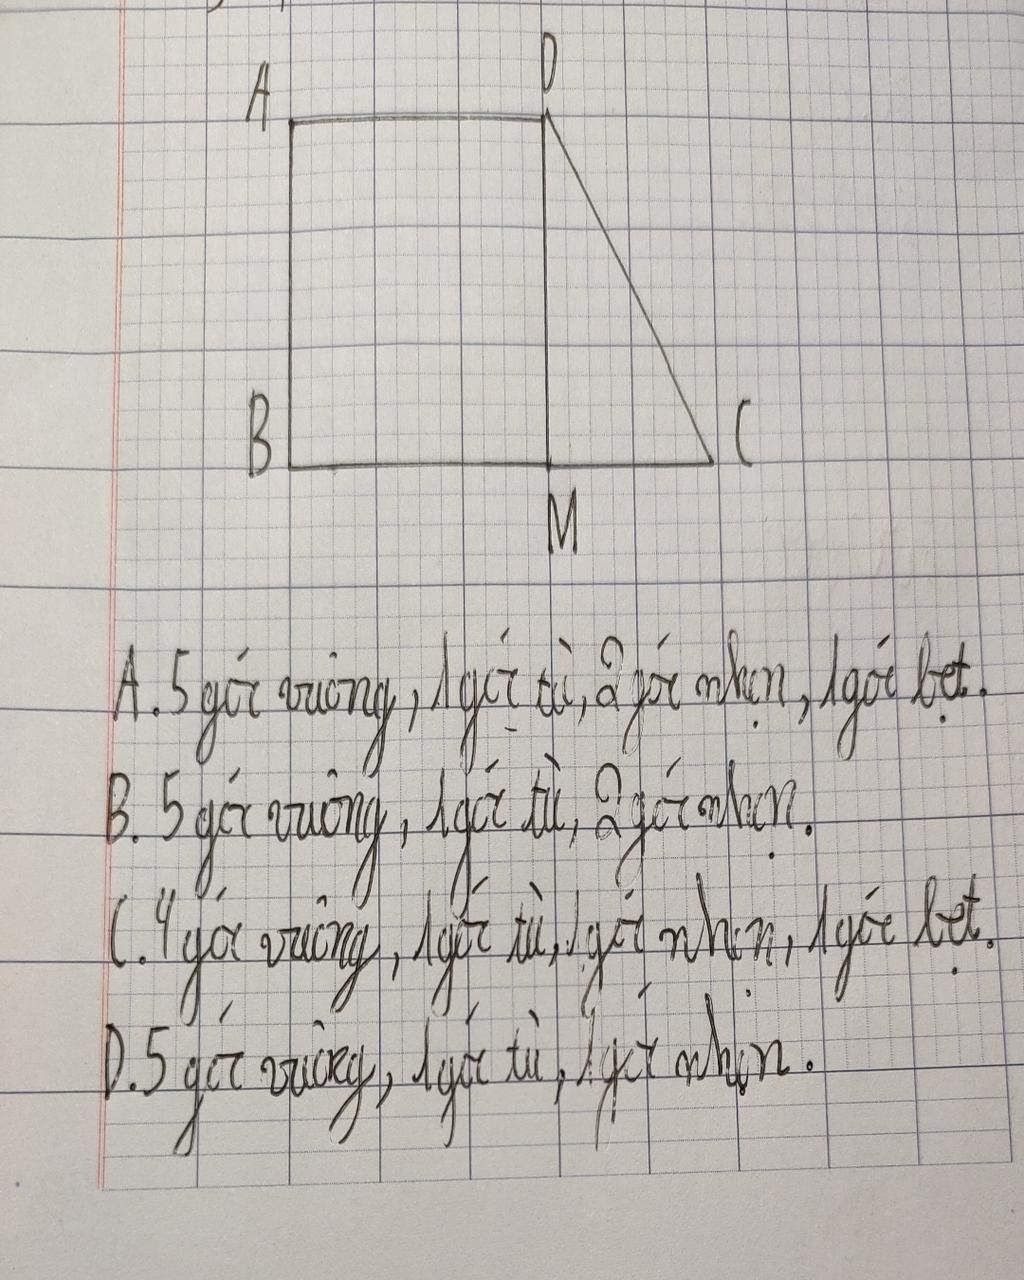 A D
B C
M
A. 5 góc vuông, 1 góc tù, 2 góc nhọn, 1 góc bẹt.
B. 5 góc vuông, 1 góc tù, 2 góc nhọn.
C. 4 góc vuông, 1 góc tù, 1 góc nhọn, 1 góc bẹt.
D. 5 góc vuông, 1 góc tù, 1 góc nhọn.